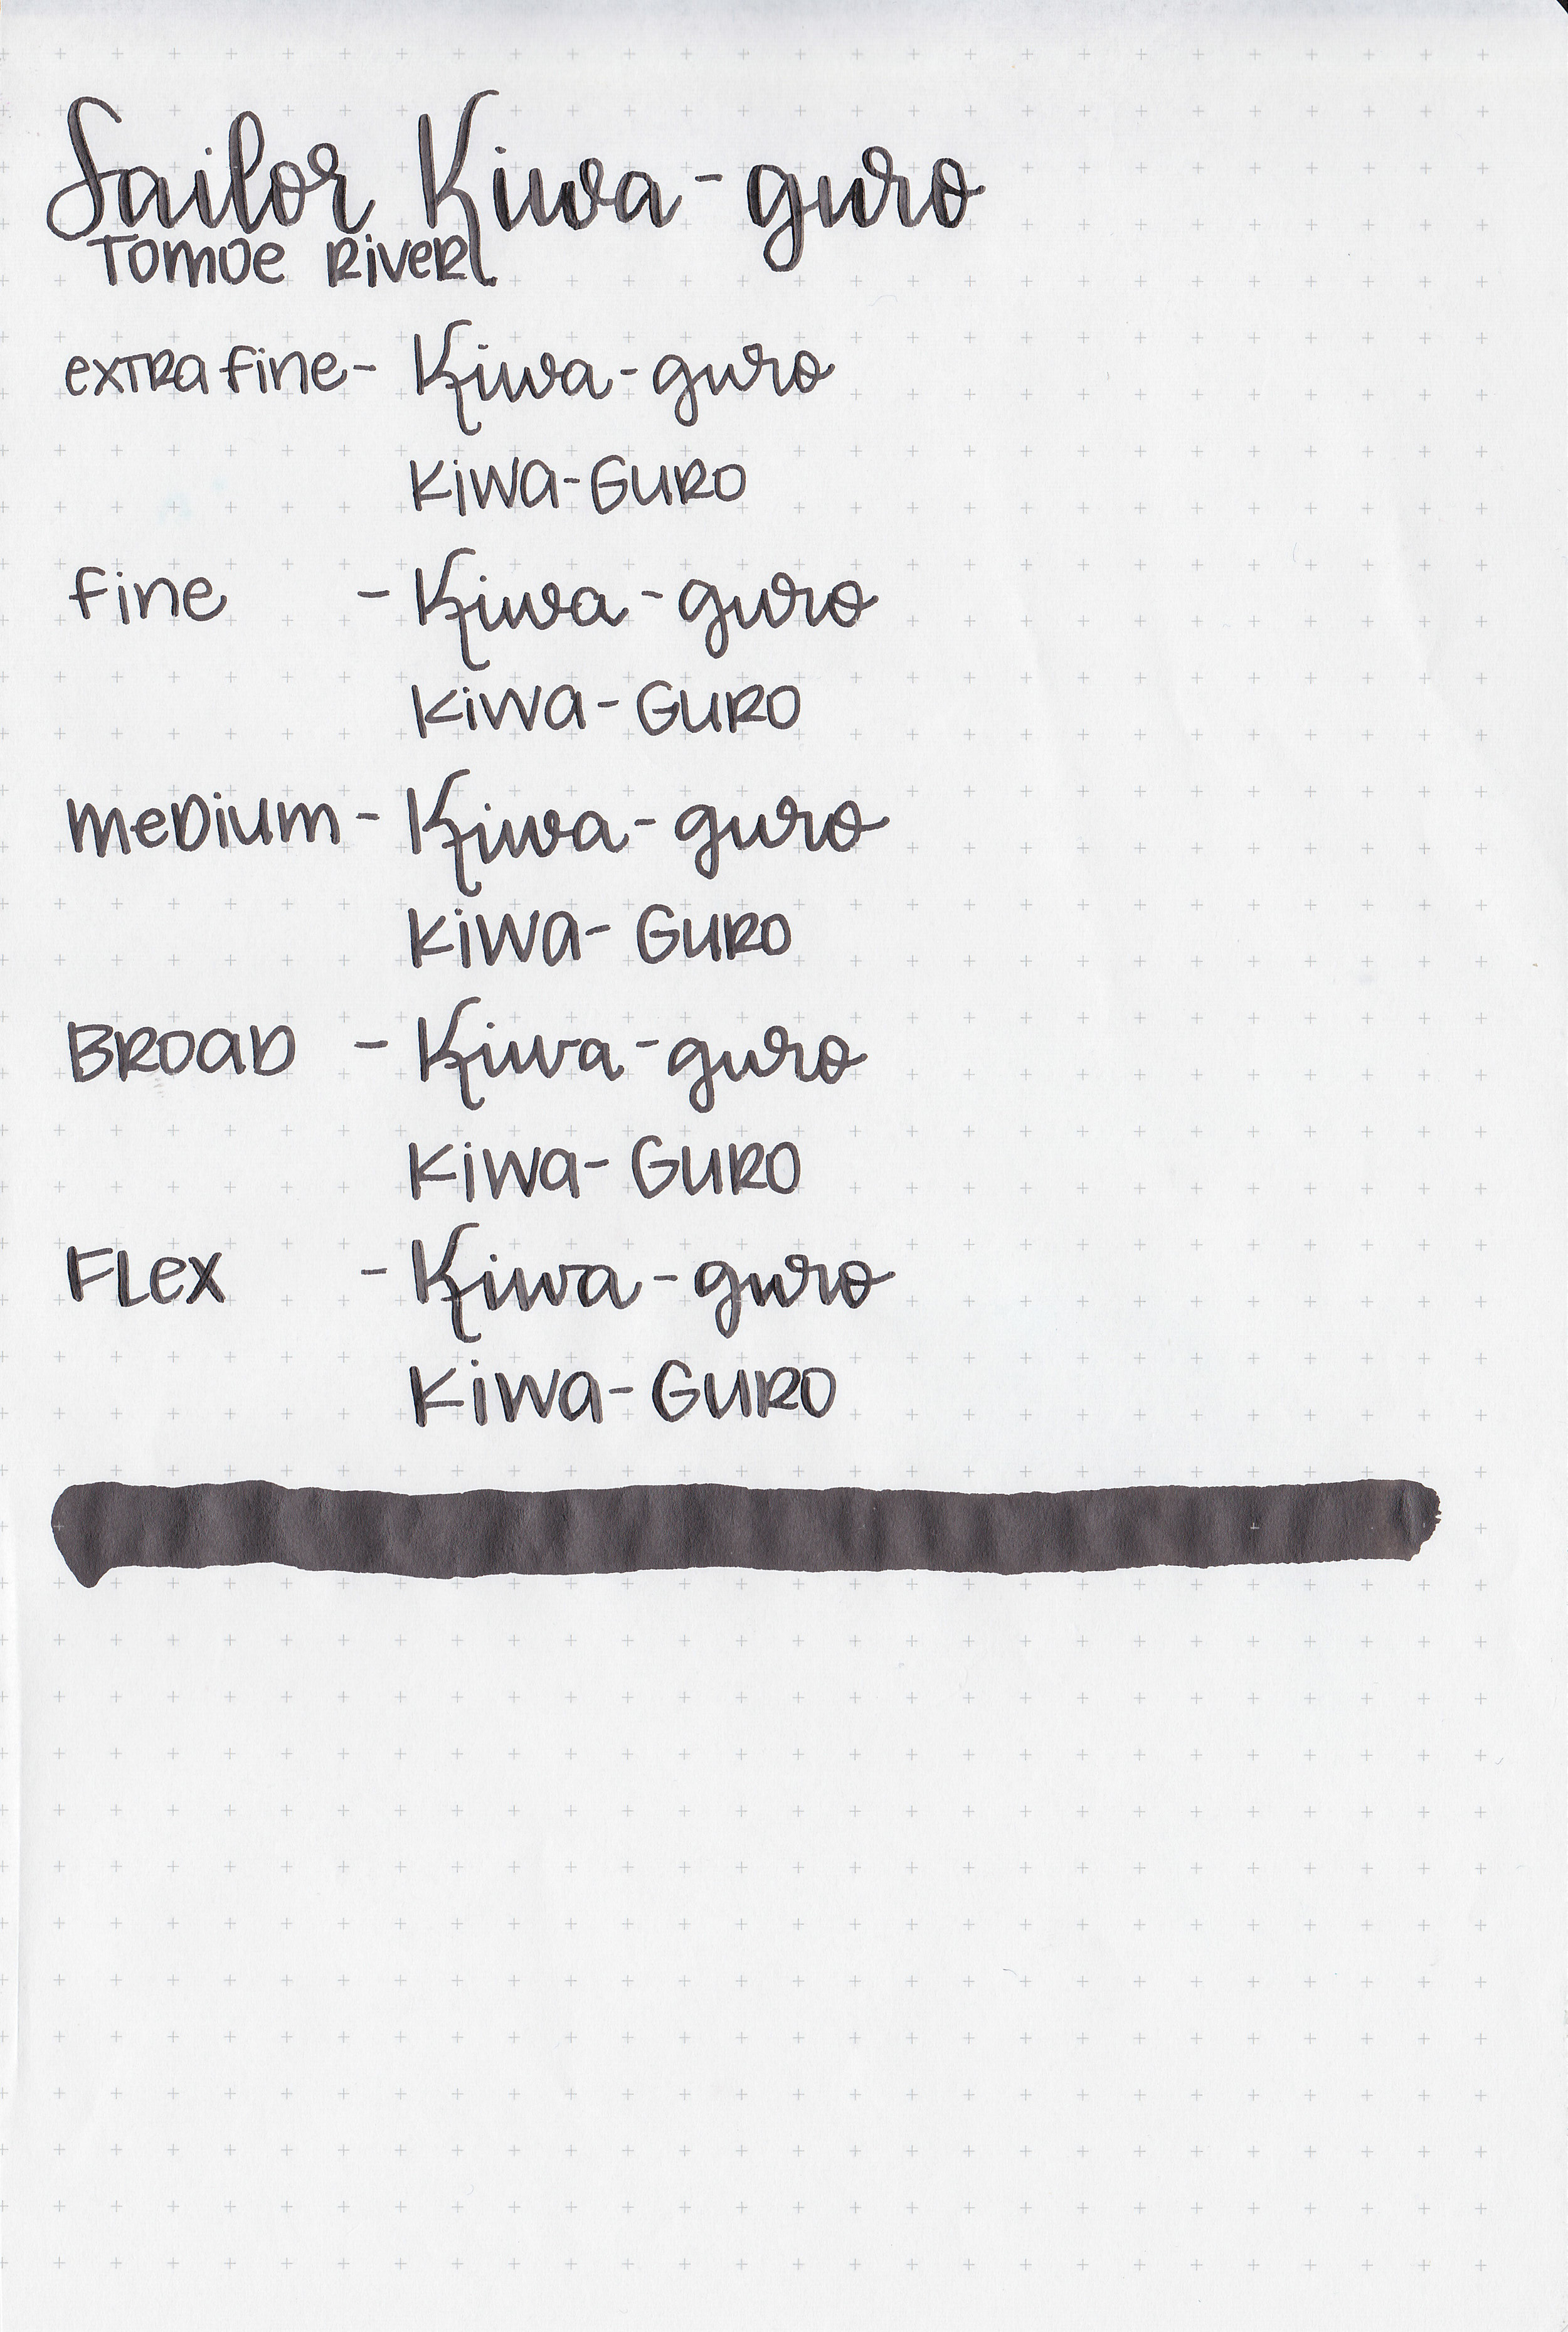 Sailor Kiwa-guro
Tomoe River
extra fine - Kiwa-guro
Kiwa-Guro
fine - Kiwa-guro
Kiwa-Guro
medium - Kiwa-guro
Kiwa-Guro
Broad - Kiwa-guro
Kiwa-Guro
Flex - Kiwa-guro
Kiwa-Guro